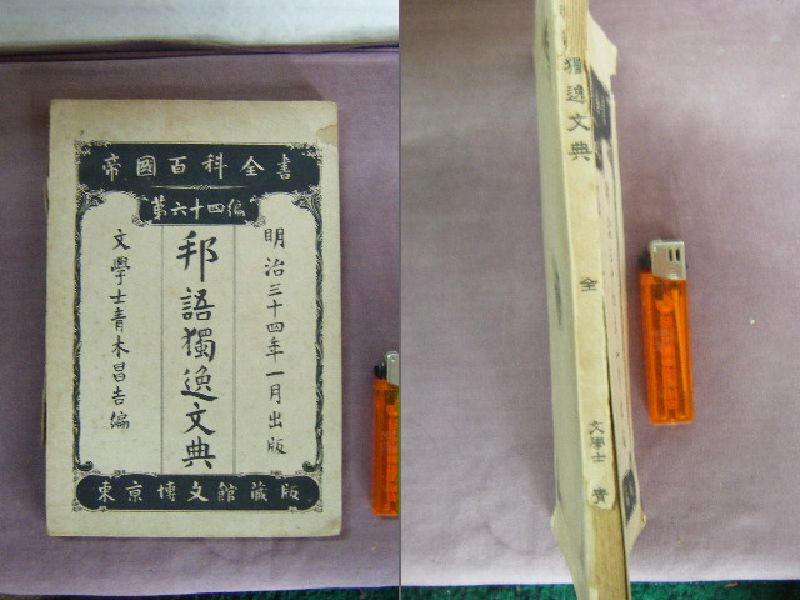 帝國百科全書
第六十四編
明治三十四年一月出版
邦語獨逸文典
文學士青木昌吉編
東京博文館藏版
獨逸文典
全
文學士 青